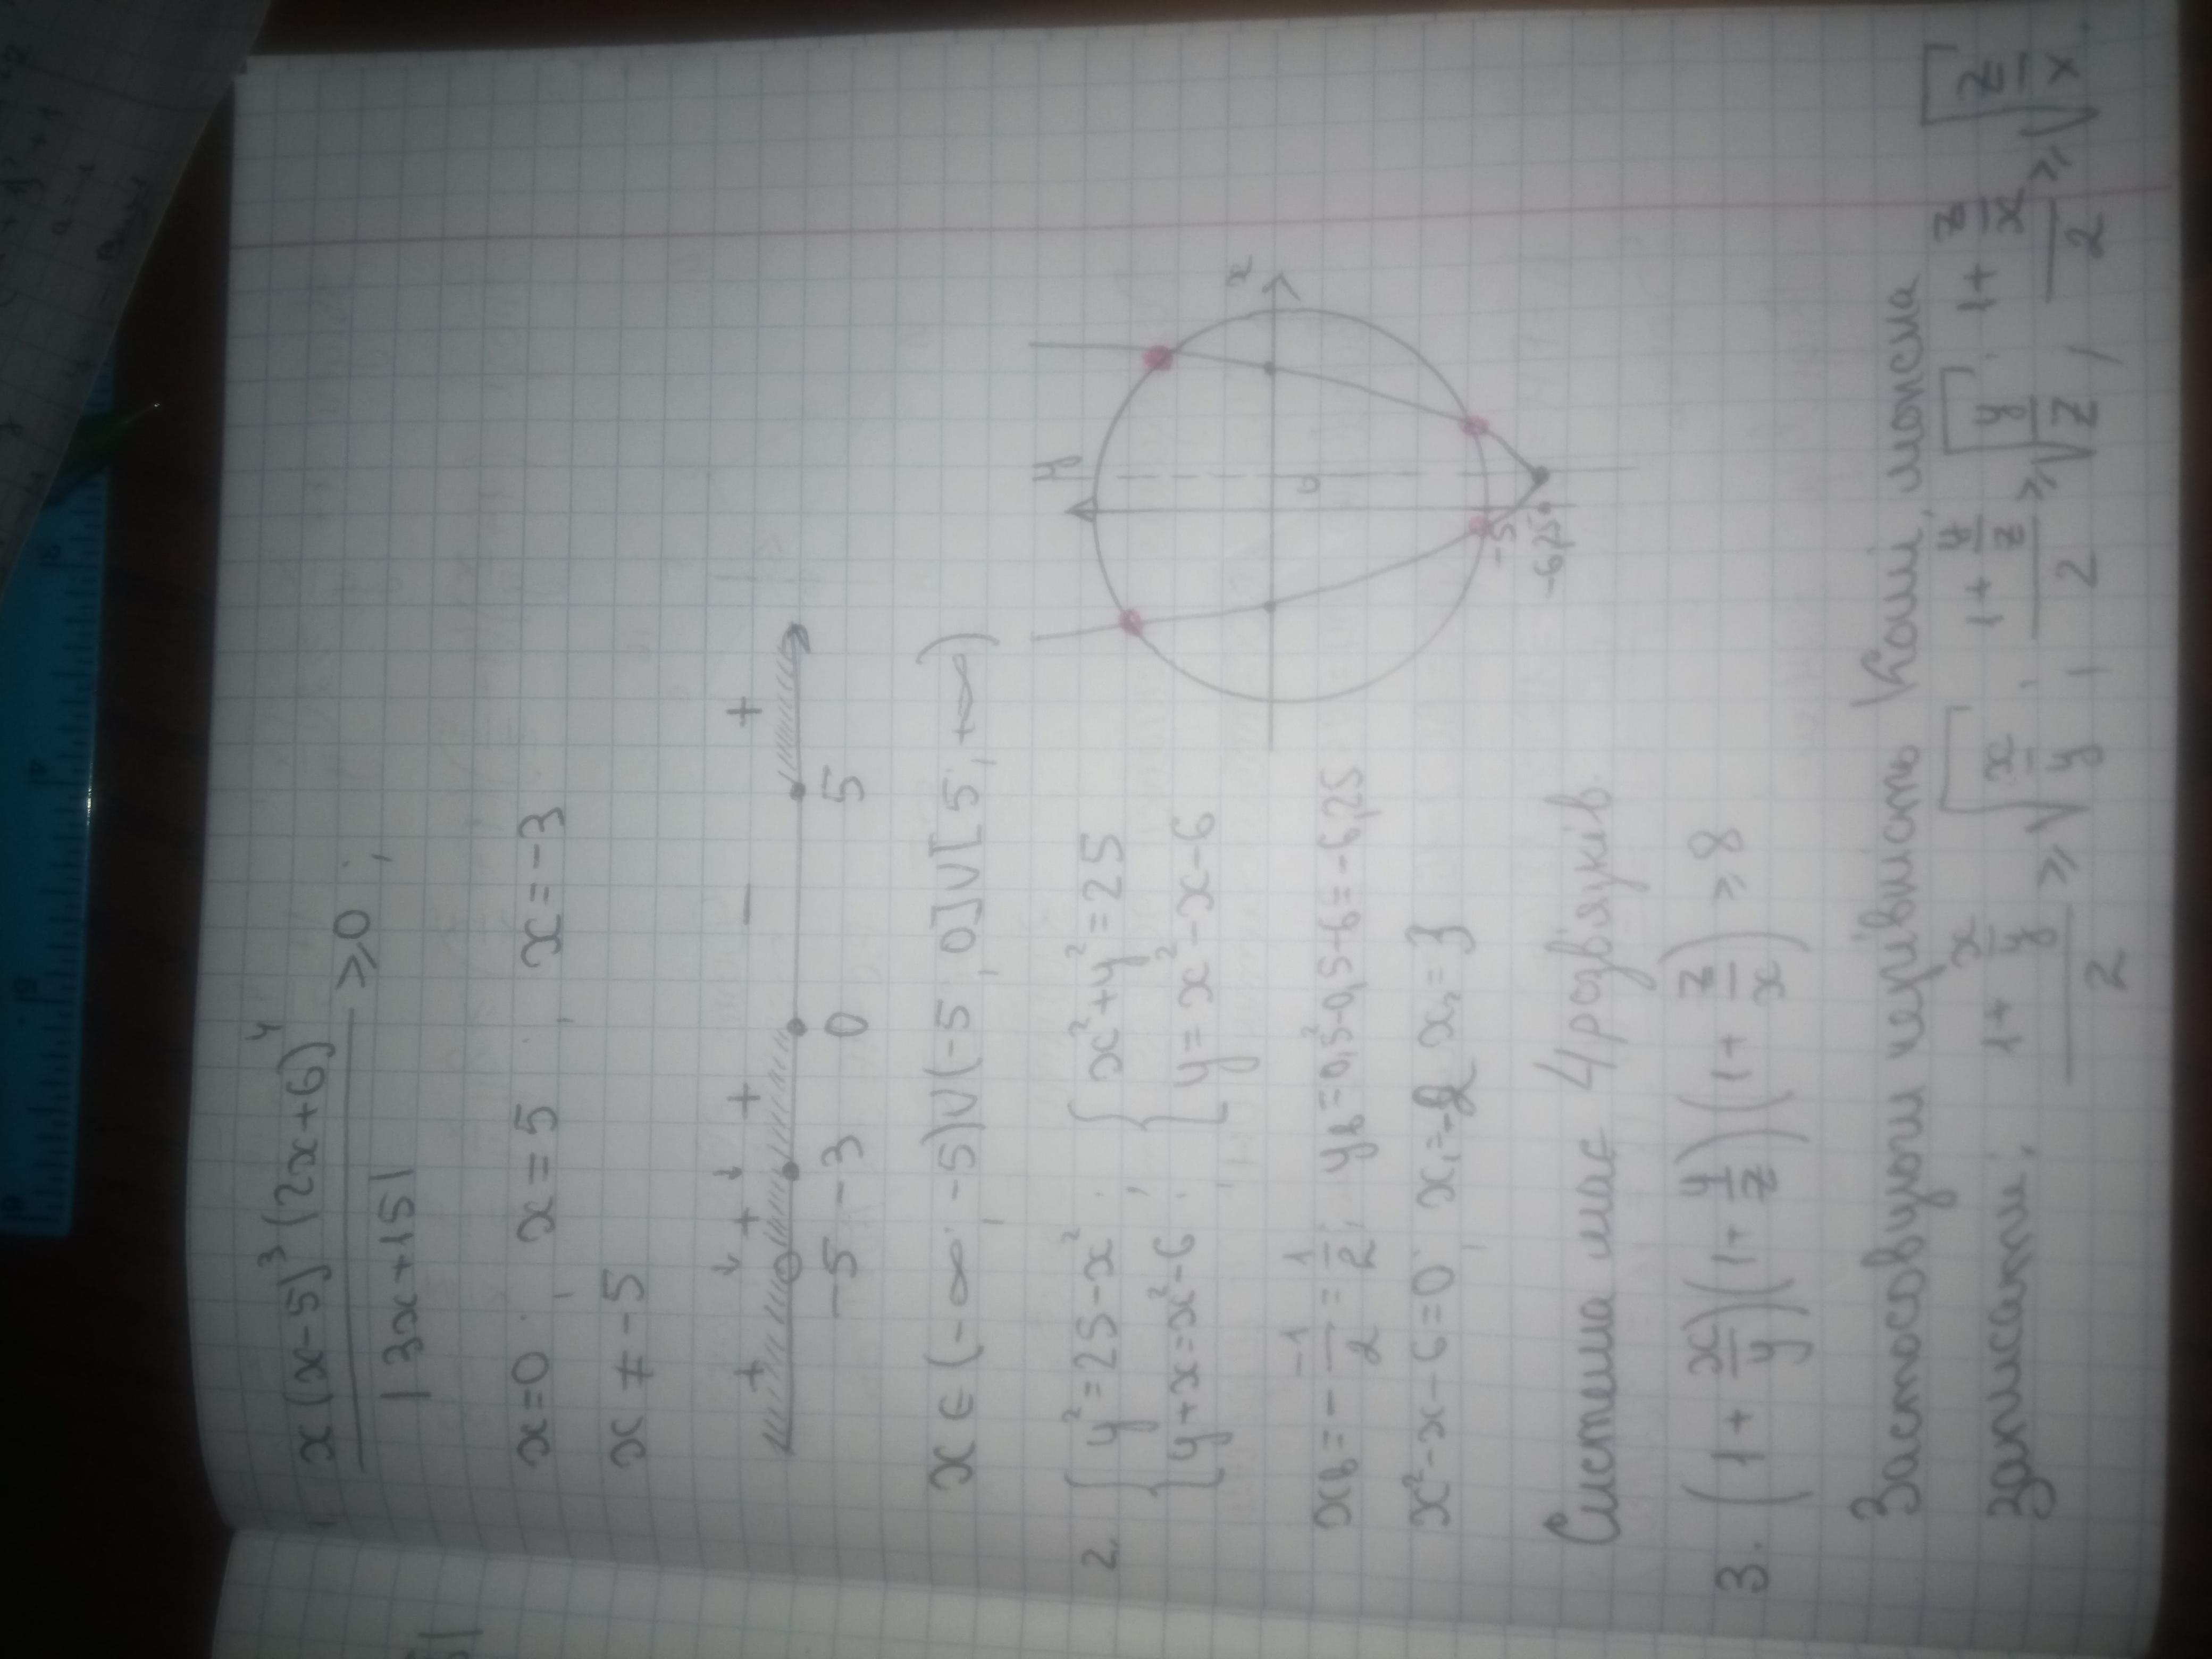 x(x-5)³(2x+6)⁴ / |3x+15| ⩾ 0;
x=0; x=5; x=-3
x ≠ -5
+ + + - +
-5 -3 0 5
x ∈ (-∞; -5)∪(-5; 0]∪[5; +∞)
2. { y²=25-x²; { x²+y²=25
{ y+x=x²-6; { y=x²-x-6
y
x
0
-5
-6,25
xв = - -1/2 = 1/2; yв=0,5²-0,5-6=-6,25
x²-x-6=0; x₁=-2 x₂=3
Система має 4 розв'язків.
3. (1+x/y)(1+y/z)(1+z/x) ⩾ 8
Застосовуючи нерівність Коші, можна
записати: (1+x/y)/2 ⩾ √(x/y); (1+y/z)/2 ⩾ √(y/z); (1+z/x)/2 ⩾ √(z/x).